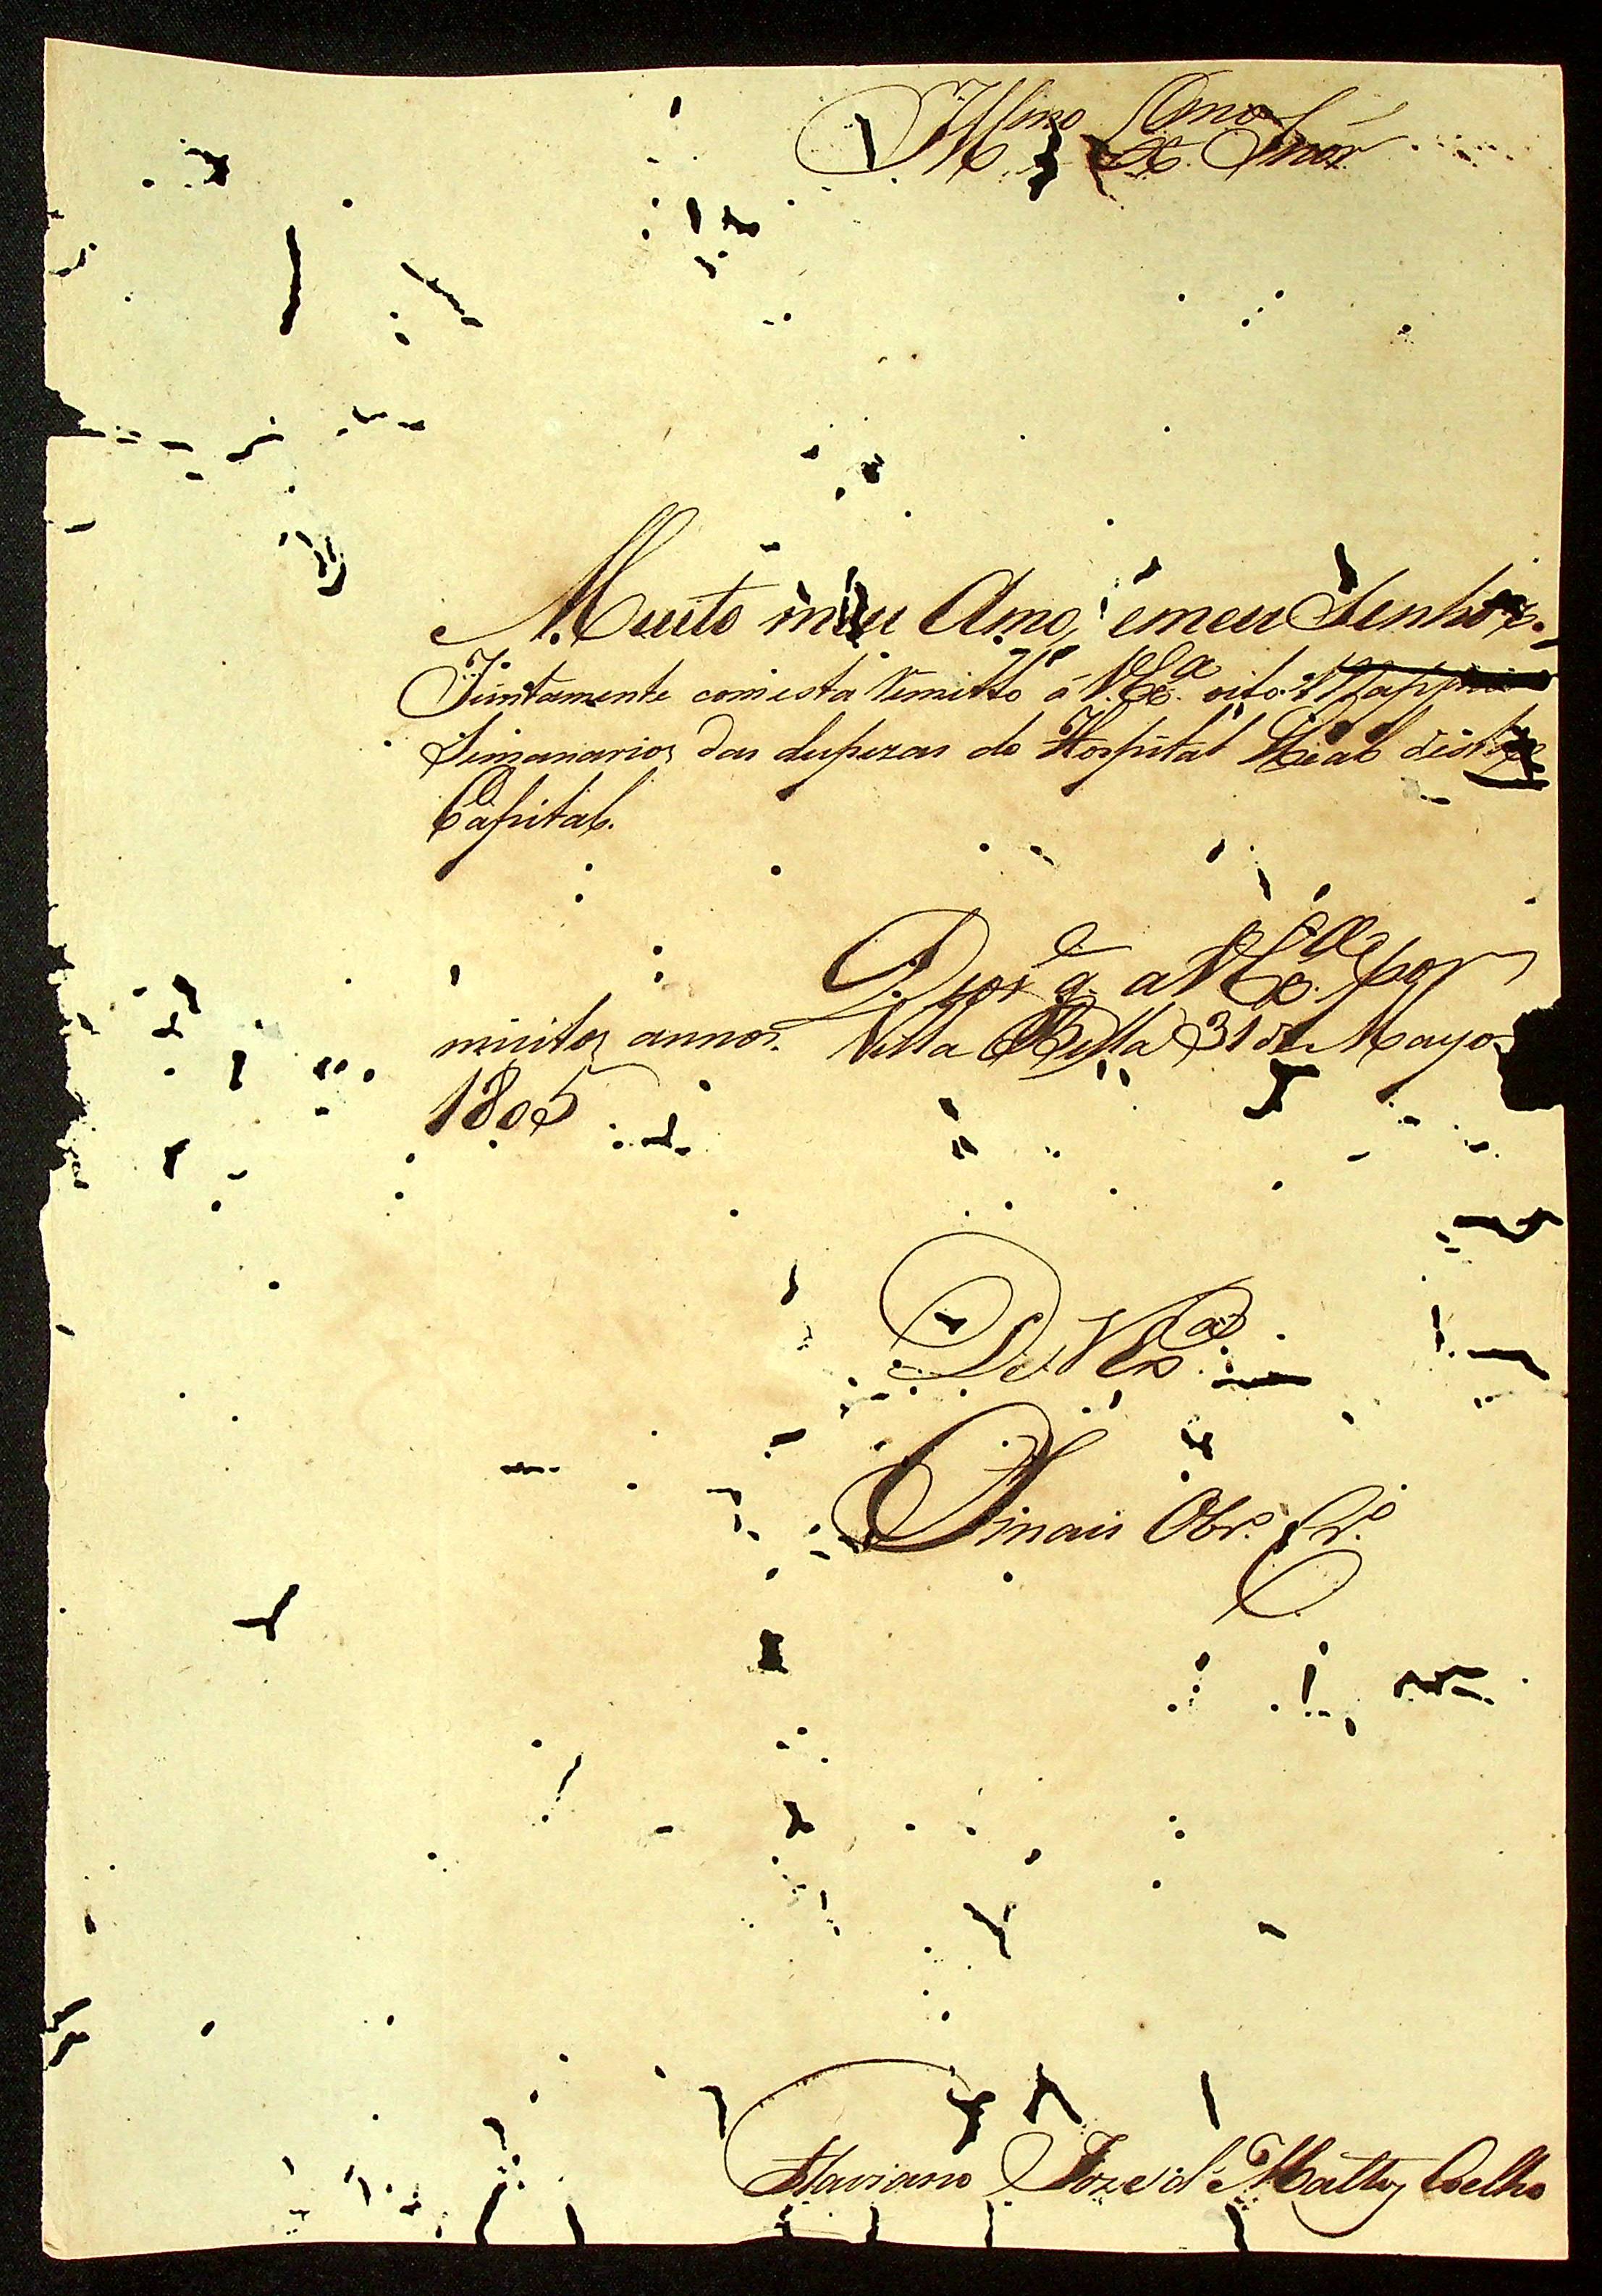 Illmo. Exmo. Snor.
Muito meu Amo, emeu Senhor.
Juntamente comesta Remitto á V.Exa. oito Mappas
Semanarios das despezas do Hospital Real desta
Capital.
Ds. ge. a V.Exa. por
muitos annos. Villa Bella 31 de Mayo
1805
De V.Exa.
Omais Obro. Cro.
Flaviano Joze de Mattos Coelho